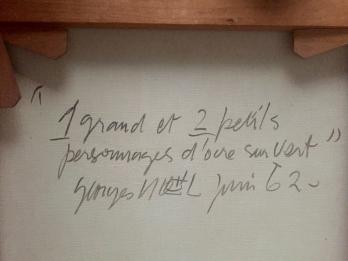 " 1 grand et 2 petits
personnages d'ocre sur vert "
Georges NOËL juin 62